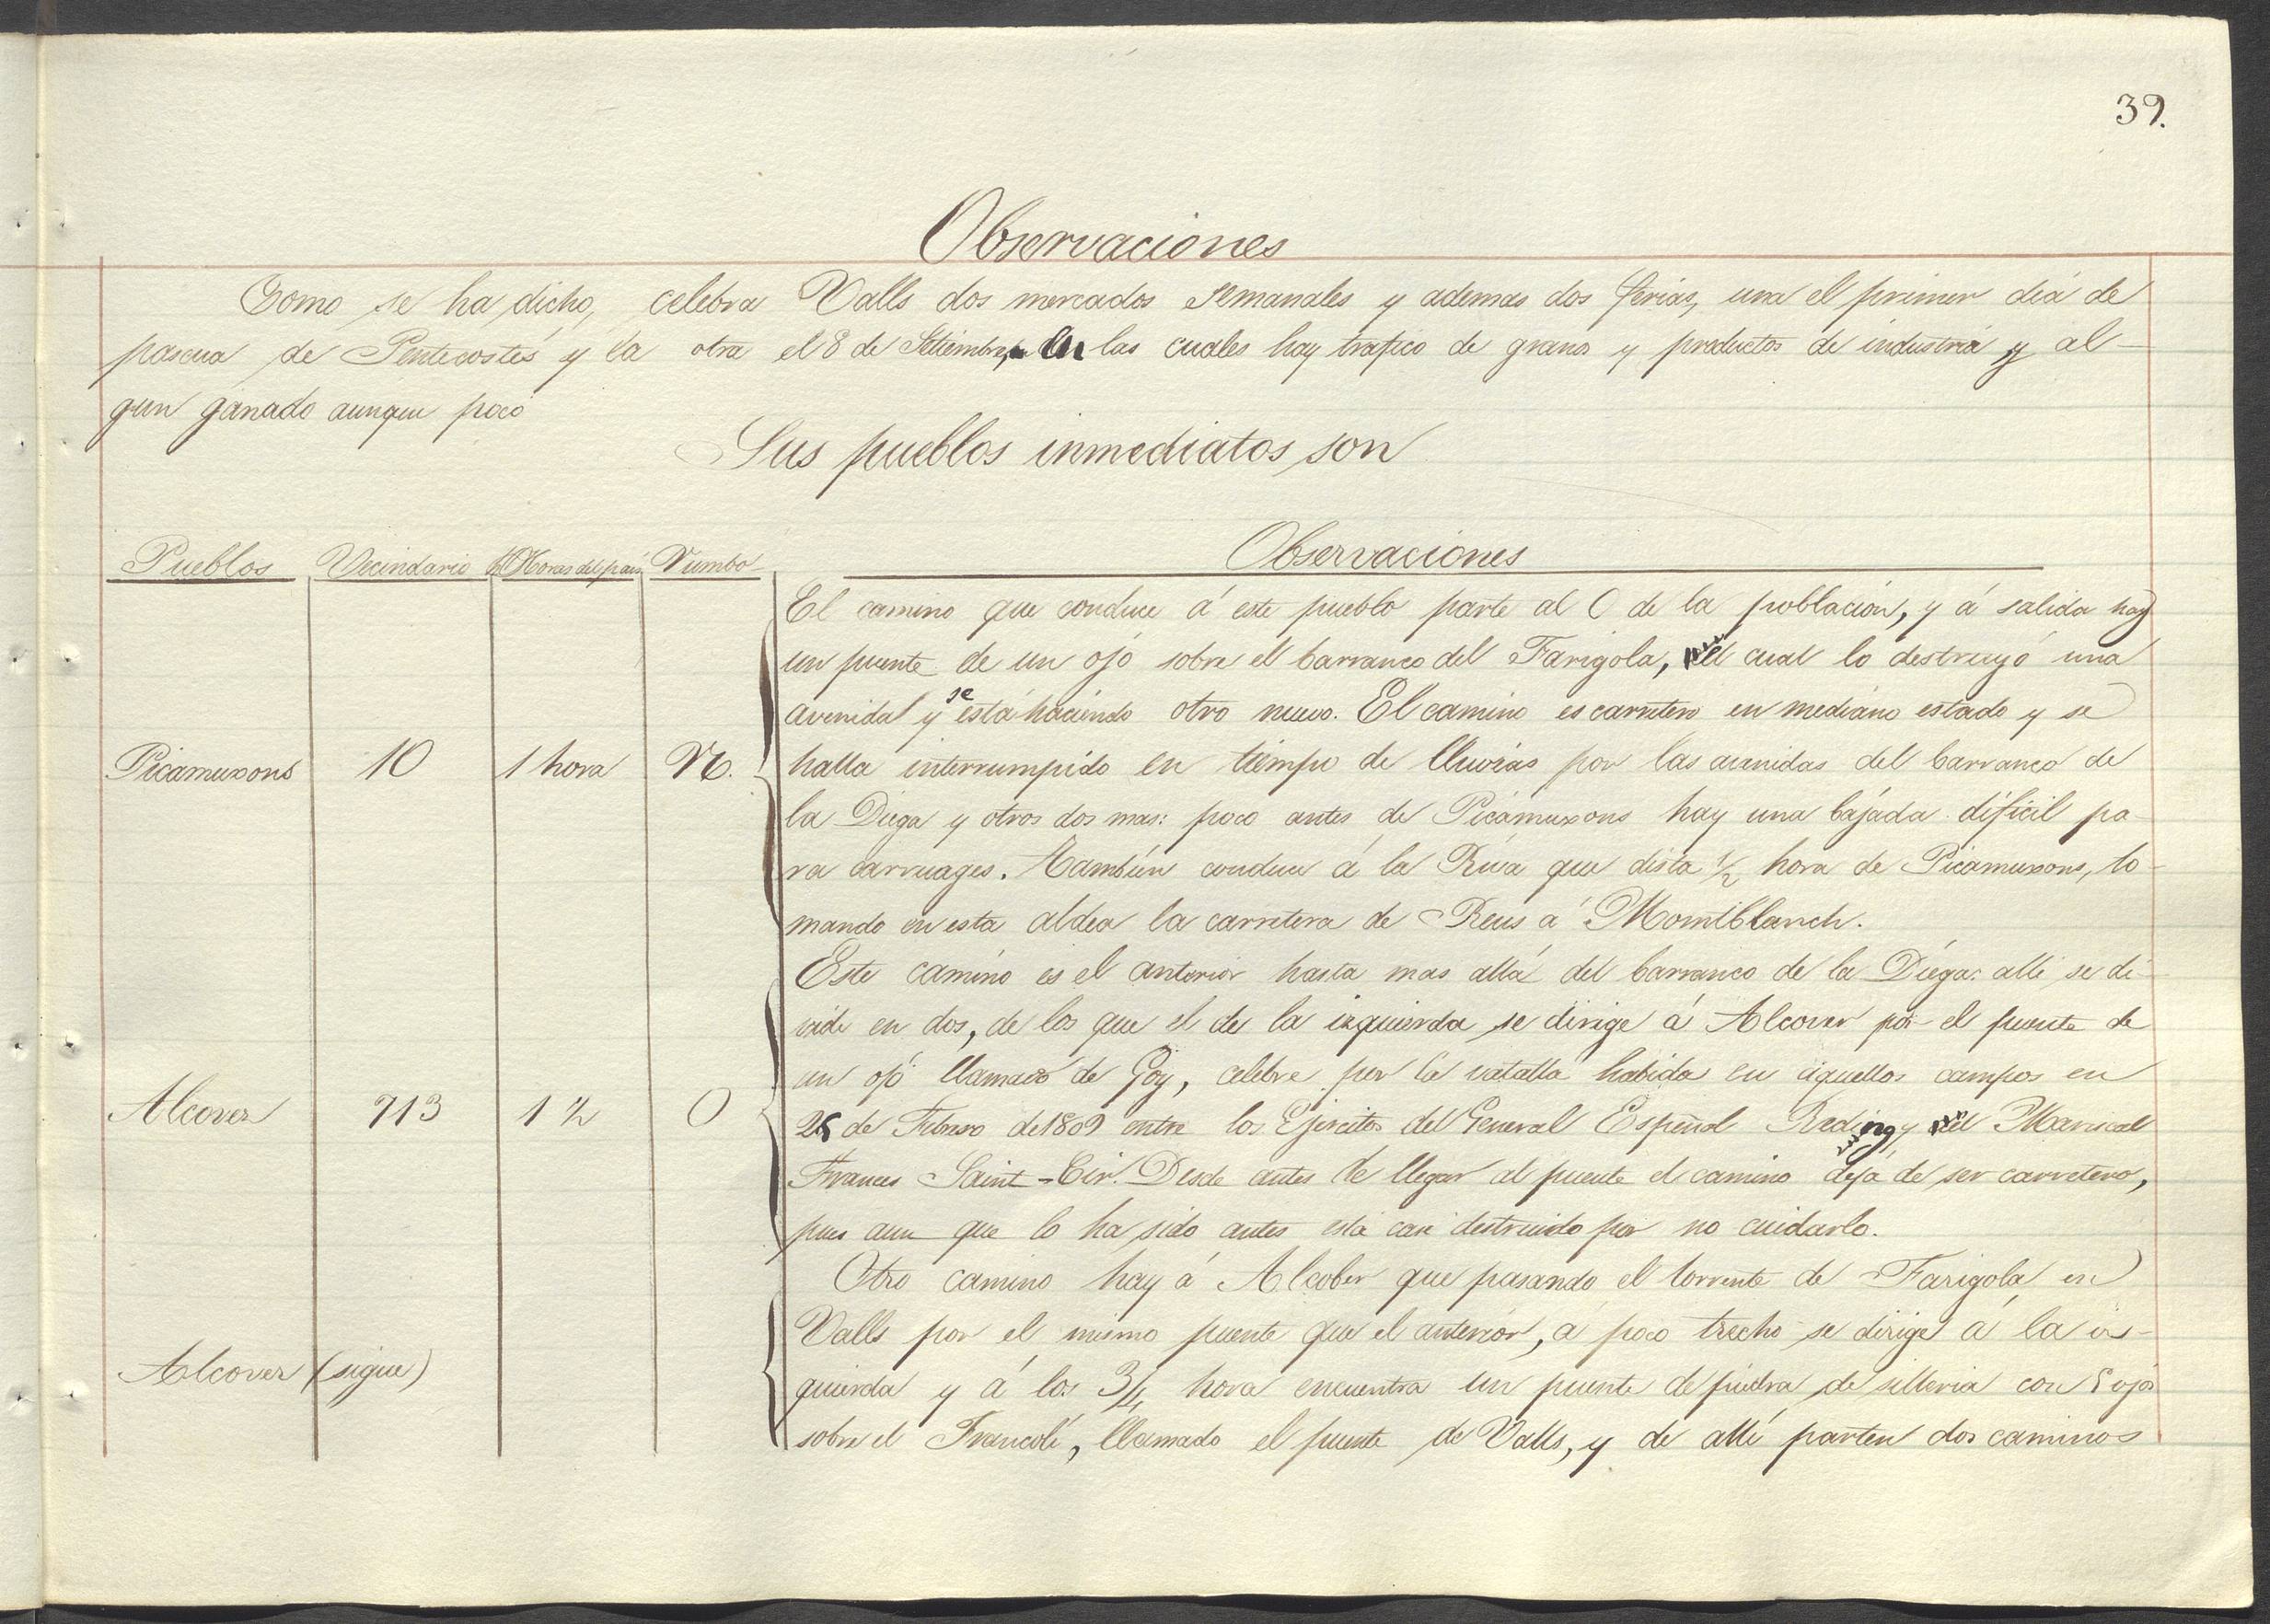 39.
Observaciones
Como se ha dicho, celebra Valls dos mercados semanales y ademas dos ferias, una el primer dia de
pascua de Pentecostés y la otra el 8 de Setiembre, en las cuales hay trafico de granos y productos de industria y al-
gun ganado aunque poco
Sus pueblos inmediatos son
Pueblos Vecindario Horas del pais Rumbo Observaciones
El camino que conduce á este pueblo parte al O de la poblacion, y á salida hay
un puente de un ojo sobre el barranco del Farigola, el cual lo destruyó una
avenida y se está haciendo otro nuevo. El camino es carretero en mediano estado y se
Picamuxons 10 1 hora N. halla interrumpido en tiempo de lluvias por las avenidas del barranco de
la Diega y otros dos mas: poco antes de Picamuxons hay una bajada dificil pa-
ra carruages. Tambien conduce á la Riva que dista 1/2 hora de Picamuxons, to-
mando en esta aldea la carretera de Reus a Momtblanch.
Este camino es el anterior hasta mas allá del barranco de la Diega: alli se di-
vide en dos, de los que el de la izquierda se dirige á Alcover por el puente de
un ojo llamado de Goy, celebre por la vatalla habida en aquellos campos en
Alcover 713 1 1/2 O 25 de Febrero de 1809 entre los Ejercitos del General Español Reding, y el Mariscal
Frances Saint-Cir. Desde antes de llegar al puente el camino deja de ser carretero,
pues aun que lo ha sido antes está casi destruido por no cuidarlo.
Otro camino hay á Alcober que pasando el torrente de Farigola en
Valls por el mismo puente que el anterior, á poco trecho se dirige á la iz-
Alcover (sigue) quierda y á los 3/4 hora encuentra un puente de piedra de silleria con 5 ojos
sobre el Francolí, llamado el puente de Valls, y de allí parten dos caminos